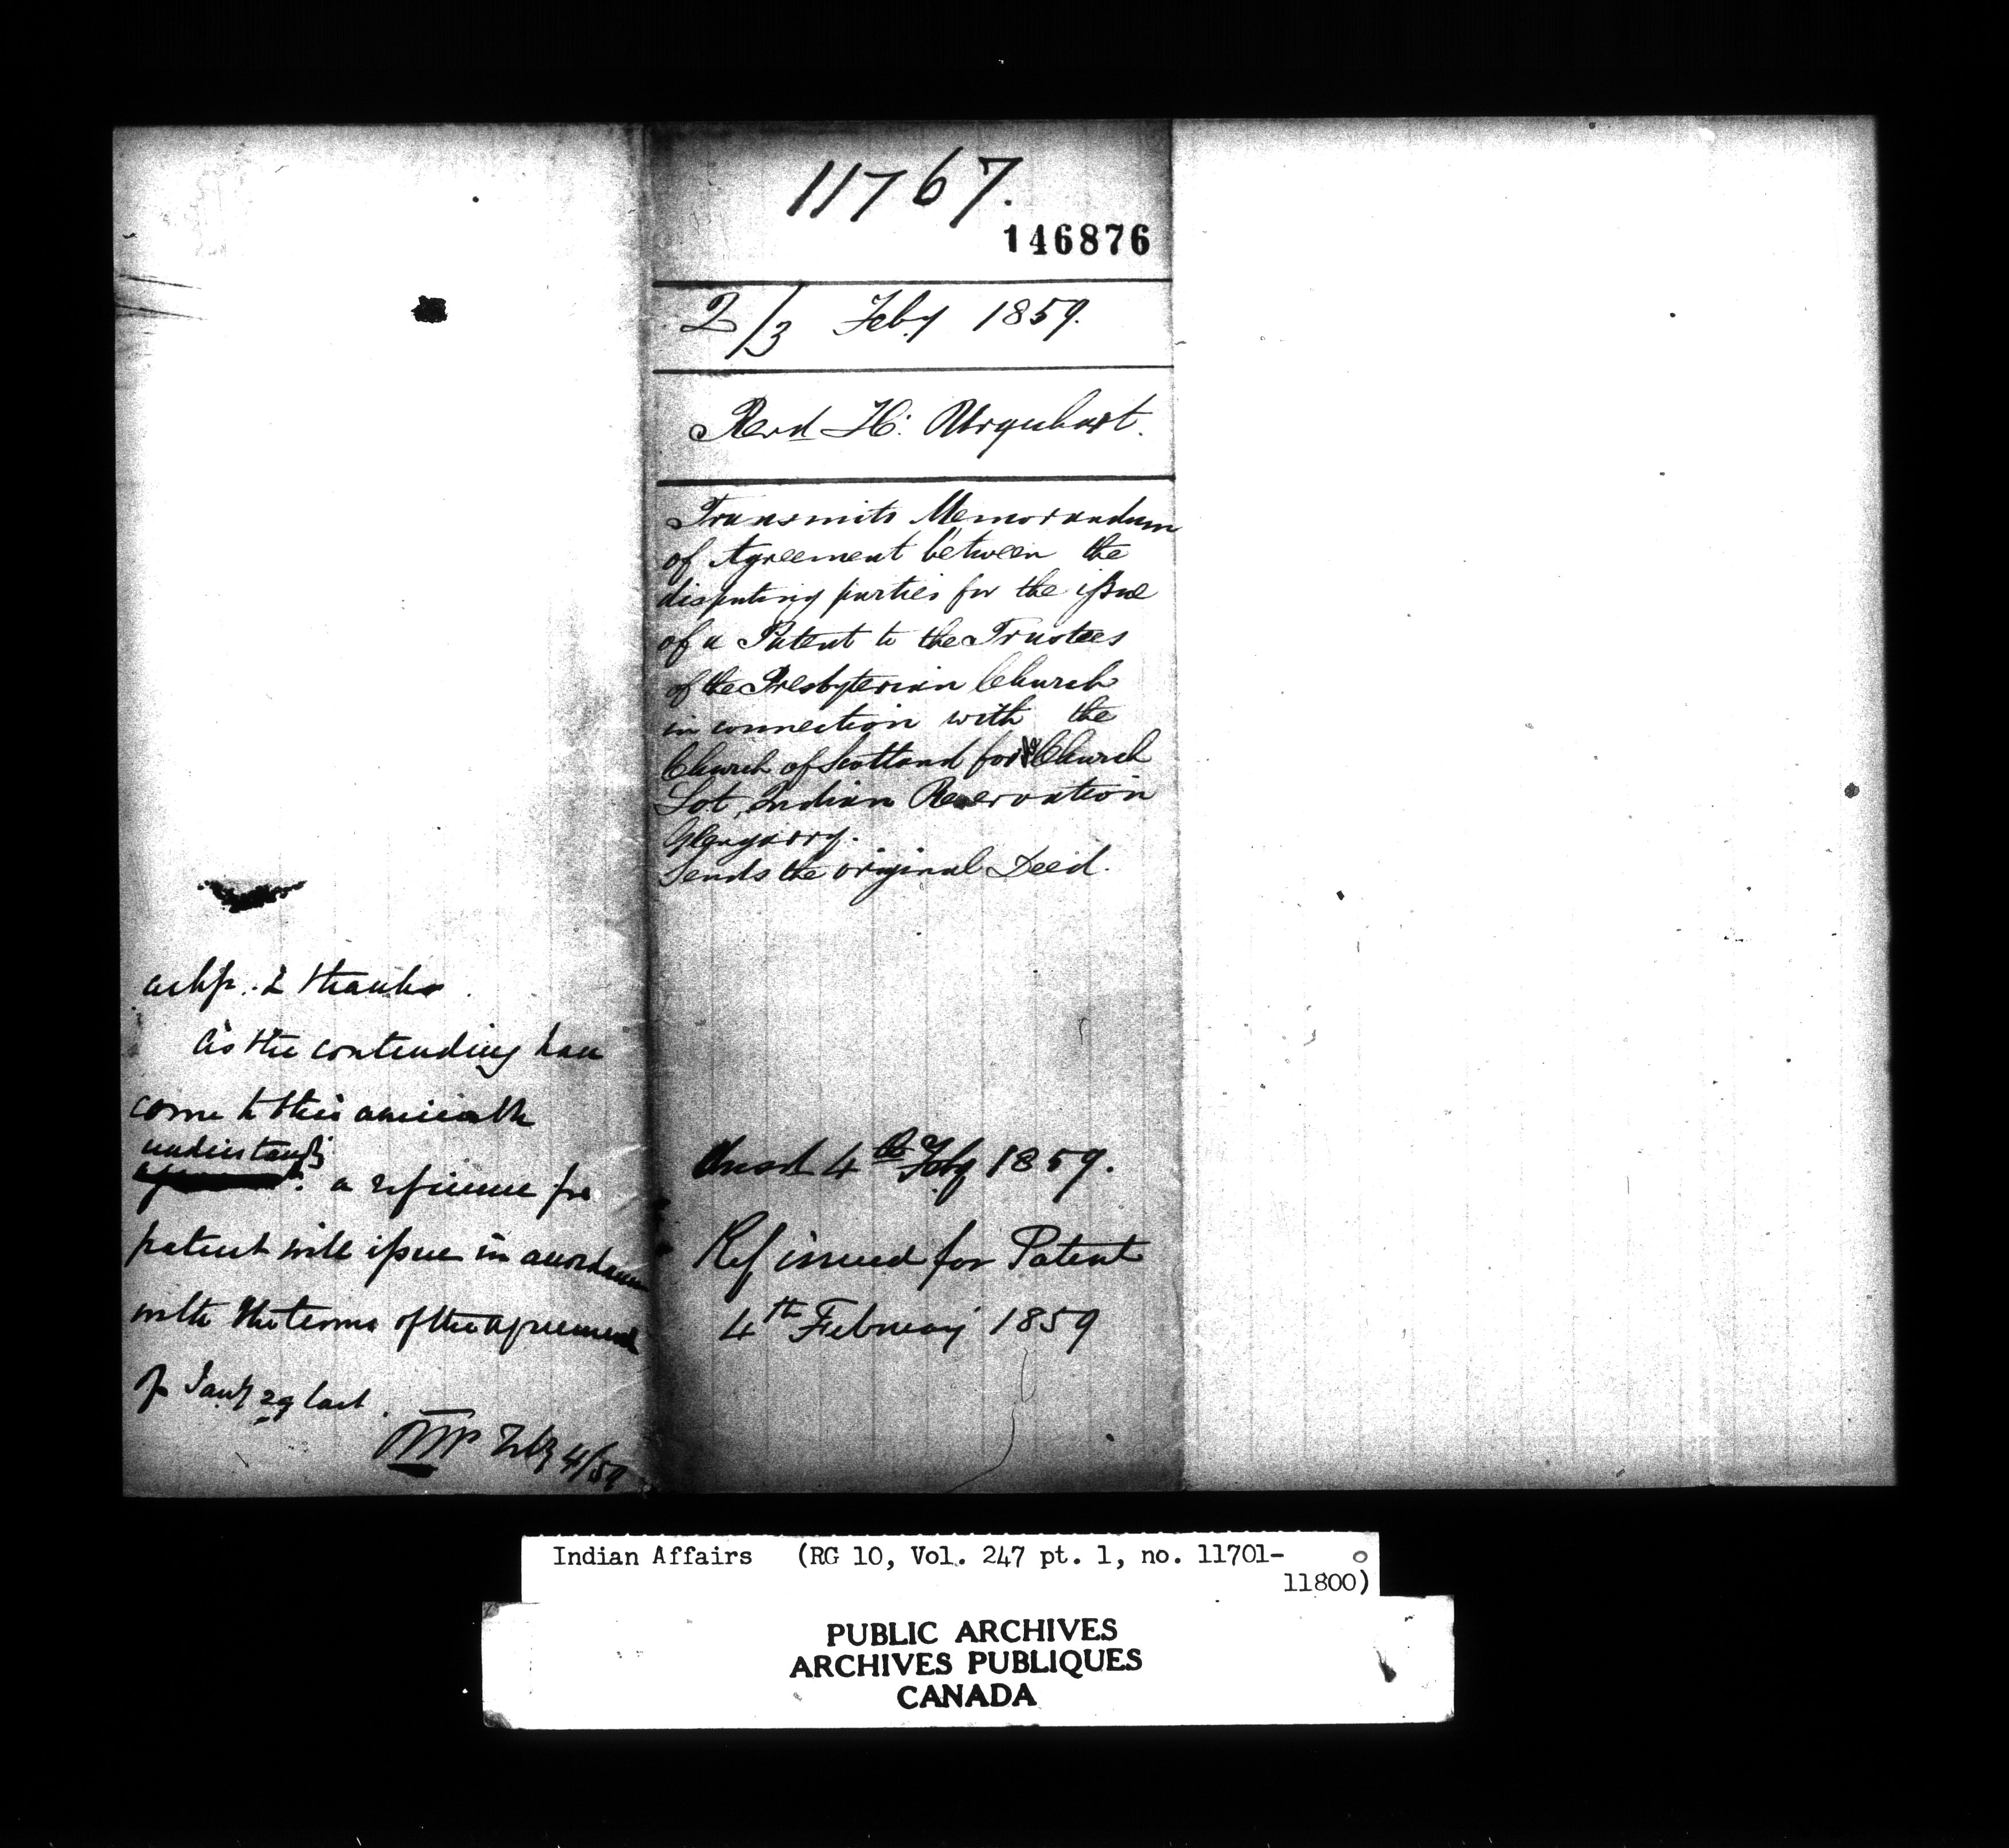 11767.
146876
2/3 Feby 1859.
Revd H. Urquhart.
Transmits Memorandum
of Agreement between the
disputing parties for the issue
of a Patent to the Trustees
of the Presbyterian Church
in connection with the
Church of Scotland for Church
Lot, Indian Reservation
Glengarry.
Sends the original Deed.
Ansd 4th Feby 1859.
Ref issued for Patent
4th February 1859
ackge. & thanks
As the contending have
come to this amicable
understandg
a reference for
patent will issue in accordance
with the terms of the agreement
of Jany 29 last.
Feby 4/59
Indian Affairs (RG 10, Vol. 247 pt. 1, no. 11701-
11800)
PUBLIC ARCHIVES
ARCHIVES PUBLIQUES
CANADA